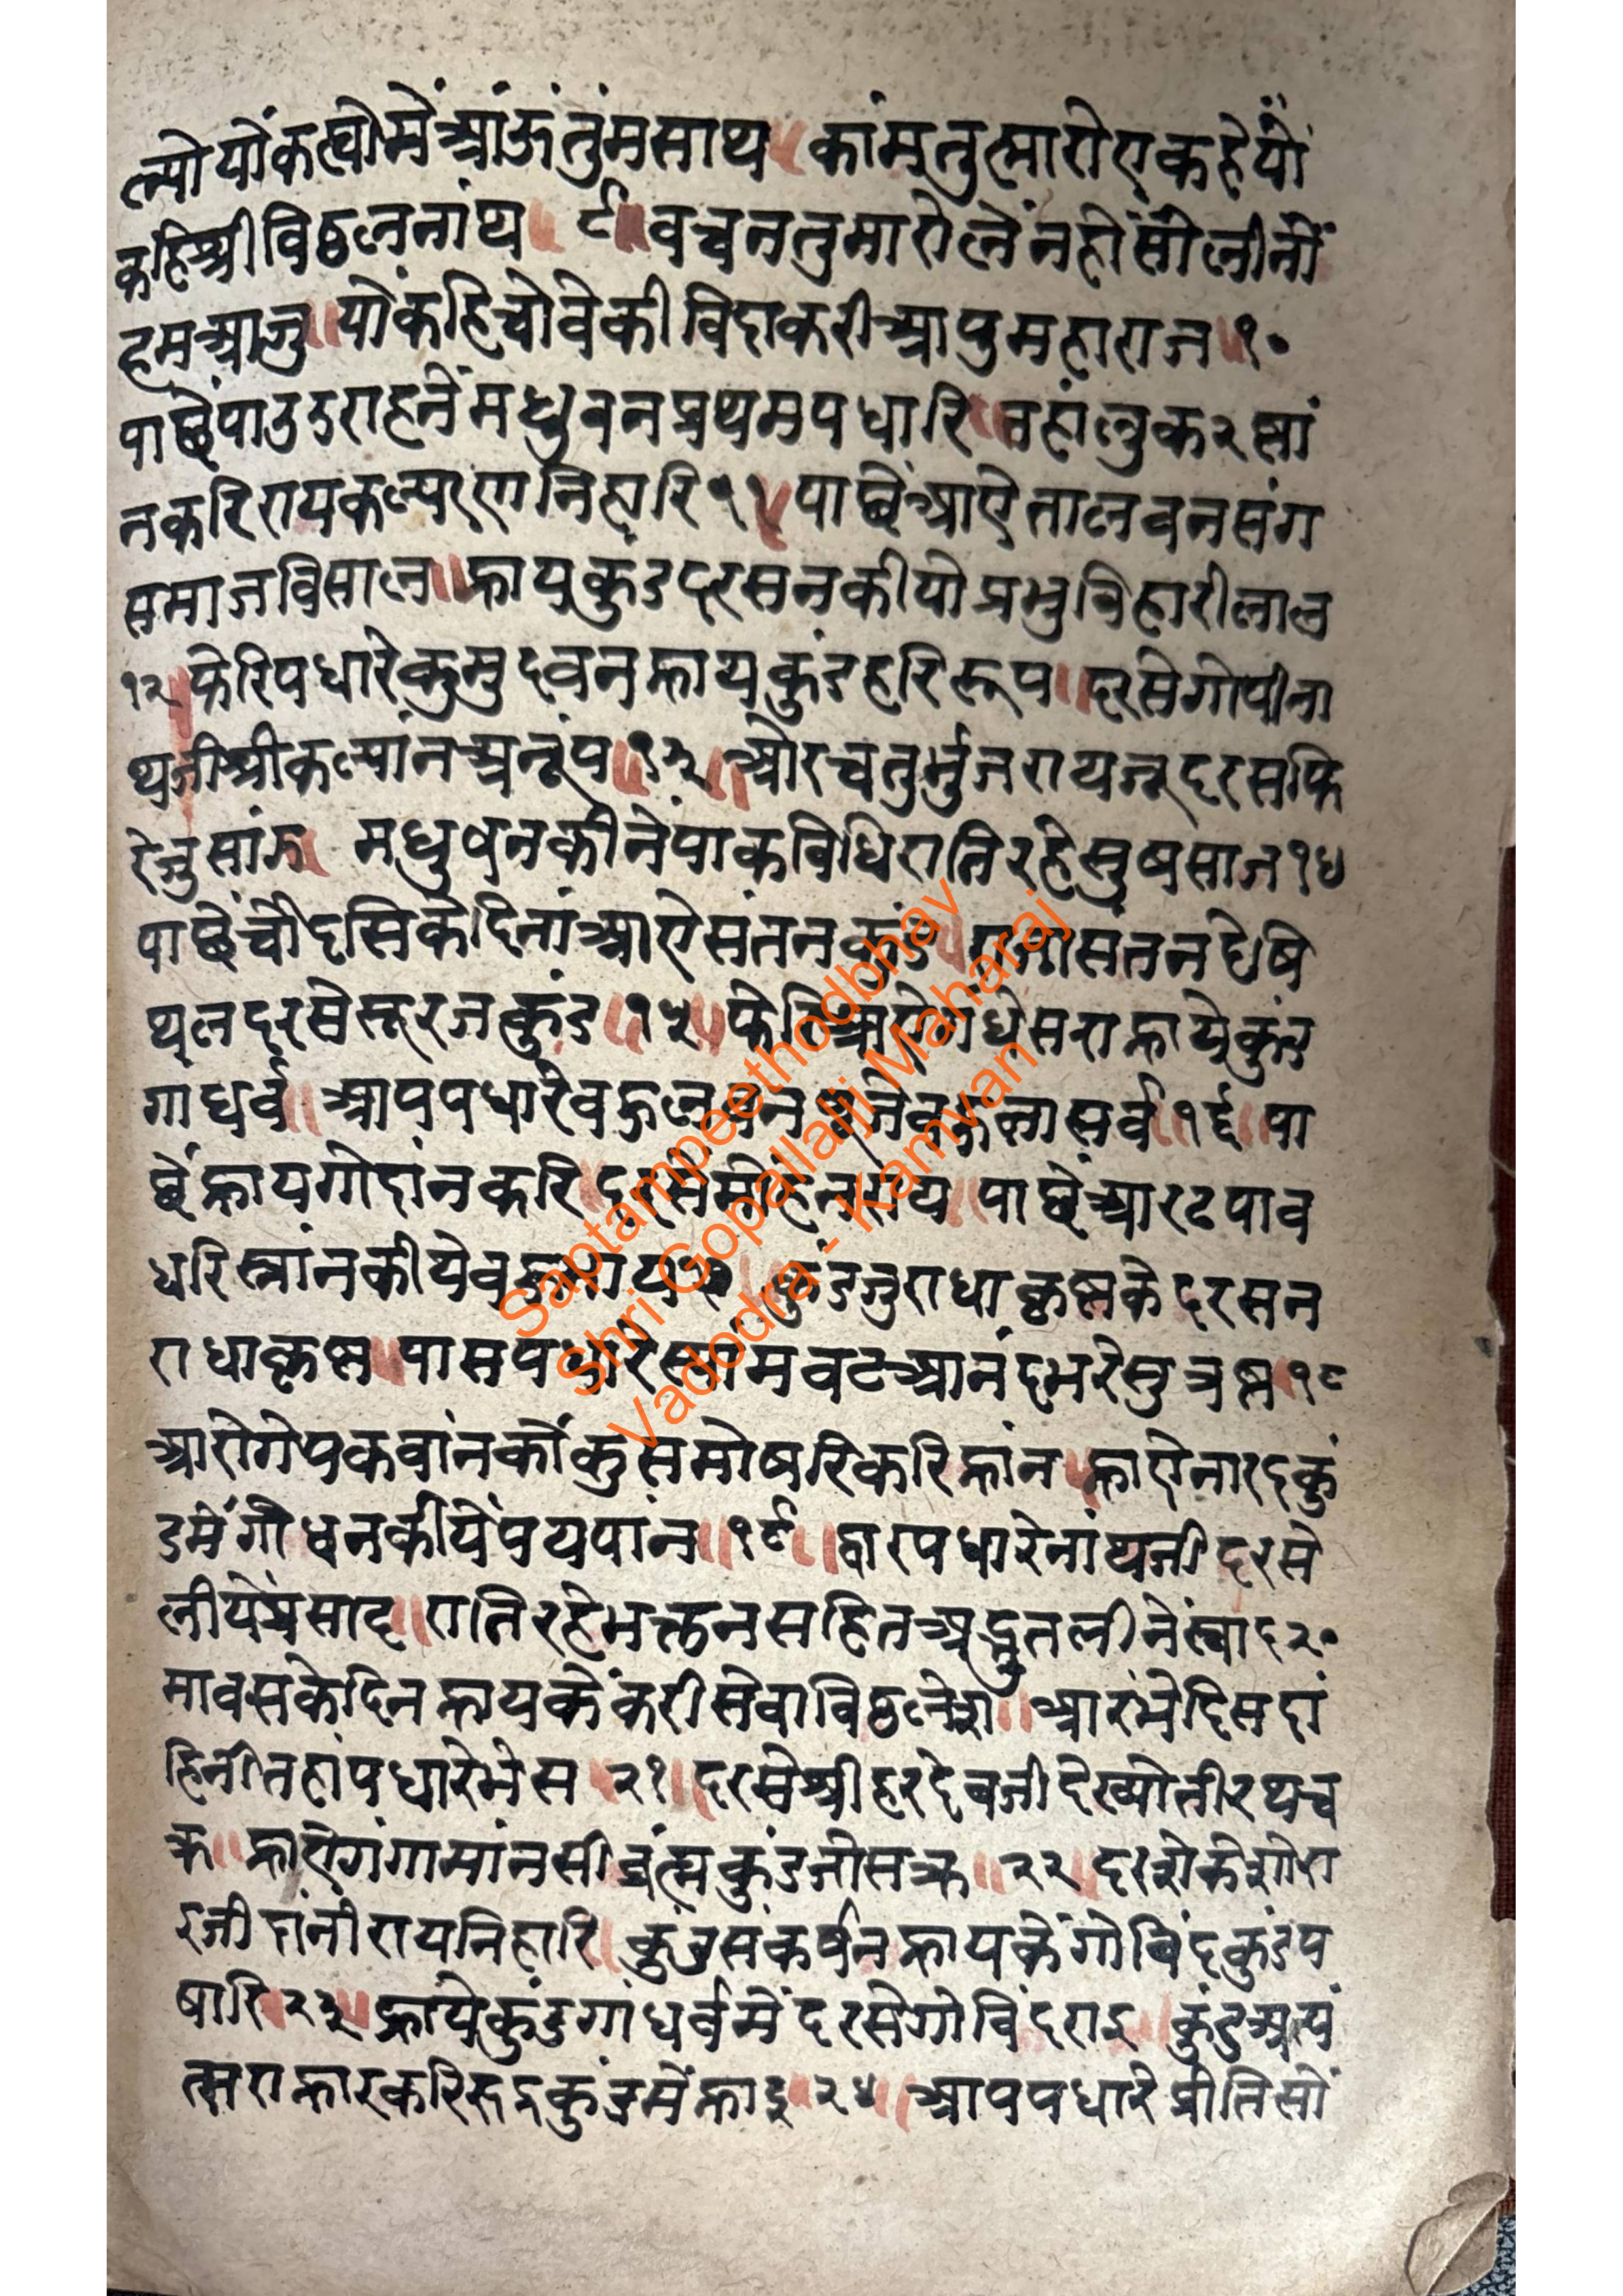 ल्यो यों कह्यो में आंऊं तुंम साथ ॥ कांम तुह्मारो ए कहे यों
कहि श्री विठ्ठलनांथ ॥ ९ ॥ वचन तुमारो लें नही सों लीनों
हम आजु ॥ यों कहि चोवे की विदा करी आपु महाराज ॥ १०
पाछें पाउ उराहनें मधुवन प्रथम पधारि ॥ तहां जु कर स्नां
न करि राय कल्याण निहारि ११ ॥ पाछें आऐ तालवन संग
समाज विसाल ॥ न्हाय कुंड दरसन कीयो प्रभु विहारीलाल
१२ ॥ फेरि पधारे कुमुदवन न्हाय कुंड हरि रूप ॥ दरसे गोपीना
थजी श्री कल्यांन अनूंप ॥ १३ ॥ ओर चतुर्भुजरायजू दरस फि
रे जु सांझ ॥ मधुवन कीनें पाक विधि राति रहे सुष साज १४
पाछें चौदसि के दिनां आऐ संतनकुंड ॥ राजा संतन देषि
थल दरसे सूरजकुंड ॥ १५ ॥ फेरि आऐ गंधेसरा न्हाये कुंड
गांधर्व ॥ आप पधारे वहुलावन पूजे वहुला सर्व ॥ १६ ॥ पा
छें न्हाय गोदांन करि ॥ दरसे मोहनराय ॥ पाछें आरट पाव
धरि स्नांन कीये वहु भाय १७ ॥ कुंड जु राधाकृष्ण के दरसन
राधाकृष्ण ॥ पास पधारे स्यांमवट आनंद भरे सु प्रष्ण ॥ १८
आरोगे पकवांन कों कुसमोषरि करि न्हांन ॥ न्हाऐ नारदकुं
ड में गौधन कीयें पयपांन ॥ १९ ॥ द्वार पधारे नांथजी दरसे
लीयें प्रसाद ॥ राति रहे भक्तन सहित अद्भुत लीनें स्वाद २०
मावस के दिन न्हाय कें करी सेवा विठ्ठलेश ॥ आरंभे दिस दां
हिनी तहां पधारे भेस ॥ २१ ॥ दरसे श्री हरदेवजी देख्यो तीरथ च
क्र ॥ न्हाऐ गंगा मांनसी ब्रंह्मकुंड जी सक्र ॥ २२ ॥ दरशे केशोरा
इजी दांनीराय निहारि ॥ कुंड संकर्षन न्हाय कें गोविंदकुंड प
षारि ॥ २३ ॥ न्हाये कुंड गांधर्व में दरसे गोविंदराइ ॥ कुंड अप
त्सरा न्हार करि रुद्रकुंड में न्हाइ ॥ २४ ॥ आप पधारे प्रीति सों
Saptampeethodbhav
Shri Gopallalji Maharaj
Vadodra - Kamvan